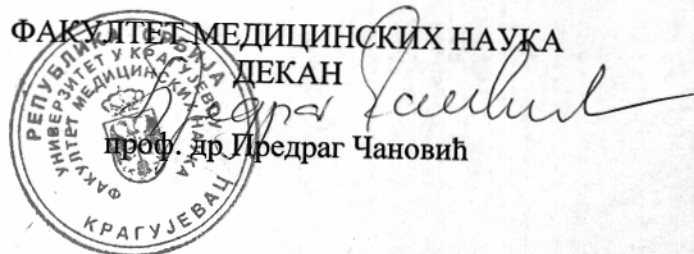 ФАКУЛТЕТ МЕДИЦИНСКИХ НАУКА
ДЕКАН
проф. др Предраг Чановић
РЕПУБЛИКА СРБИЈА
УНИВЕРЗИТЕТ У КРАГУЈЕВЦУ
ФАКУЛТЕТ МЕДИЦИНСКИХ НАУКА
КРАГУЈЕВАЦ